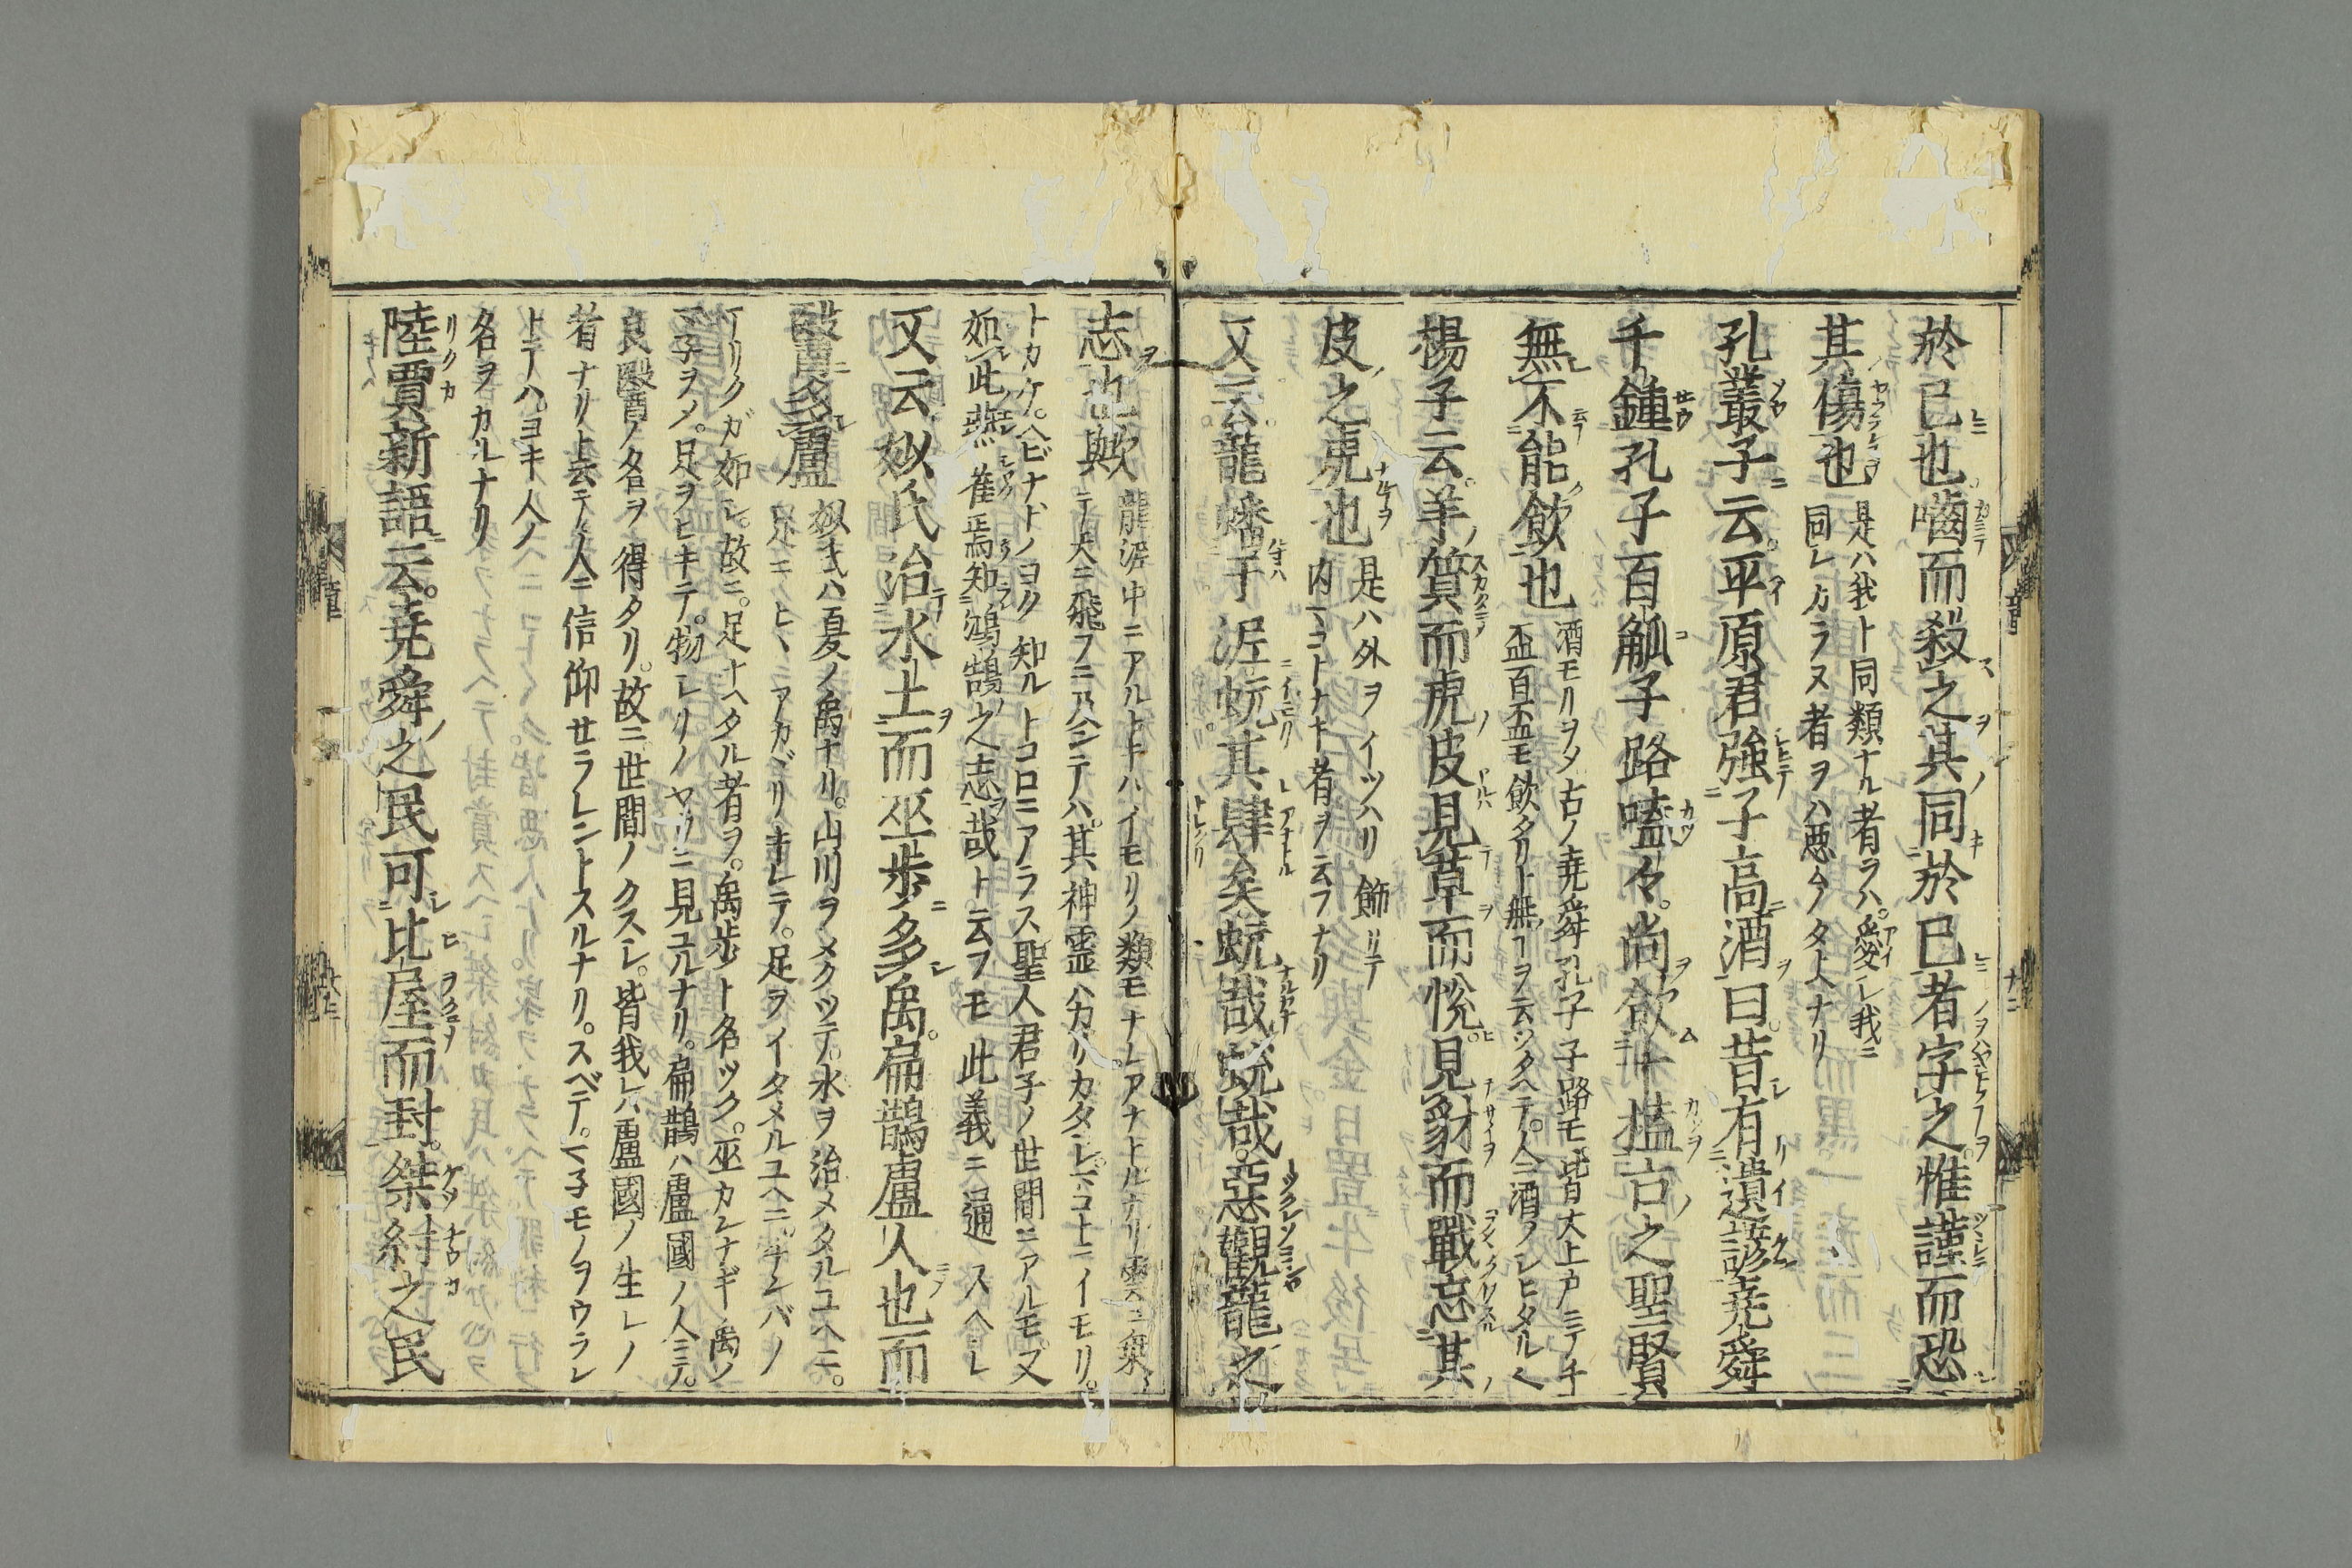 於己也嚙而殺之其同於已者字之惟謹而恐
其傷也
是ハ我ト同類ナル者ラハ愛シ我ニ
同シカラヌ者ヲハ悪ムノタトナリ
孔叢子云平原君強子高酒曰昔有遺諺堯舜
千鍾孔子百觚子路嗑々尚飲十榼古之聖賢
無不能飲也
酒モリヲタ古ノ堯舜孔子子路モ皆大上戸ニテ千
盃百盃モ飲タリト無ヿヲ云ツタヘテ人ニ酒ノシヒタル
楊子云羊質而虎皮見草而悦見豺而戰忘其
皮之虎也
是ハ外ヲイツハリ飾リテ
内マコトナキ者ヲ云フナリ
又云龍蟠于泥蚖其肆矣蚖哉蚖哉惡覩龍之
志也歟
龍泥中ニアルトキハイモリノ類モナレアナトルナリ雲ニ乗
テ天ニ飛フニ及ンテハ其神霊ハカリカタシヿコトニイモリ
トカケヘビナドノヨク知ルトコロニアラス聖人君子ノ世間ニアルモ又
如此燕雀焉知鴻鵠之志哉ト云フモ此義ニ通スヘシ
又云姒氏治水土而巫歩多禹扁鵲盧人也而
醫多盧
姒氏ハ夏ノ禹ナリ山川ヲメクツテ水ヲ治メタルユヘニ
足ニヒヾアカヾリキレテ足ヲイタメルユヘニ
ヿリクガ如シ故ニ足ナヘタル者ヲ禹歩ト名ツク巫カンナギ禹ノ
マ子ヲメ足ヲヒキテ物シリノヤウニ見ユルナリ扁鵲ハ盧國ノ人ニテ
良醫ノ名ヲ得タリ故ニ世間ノクスシ皆我レハ盧國ノ生レノ
者ナリト云テ人ニ信仰セラレントスルナリスベテマ子モノヲウラレ
トテハヨキ人ノ
名ヲカルナリ
陸賈新語云堯舜之民可比屋而封桀紂之民